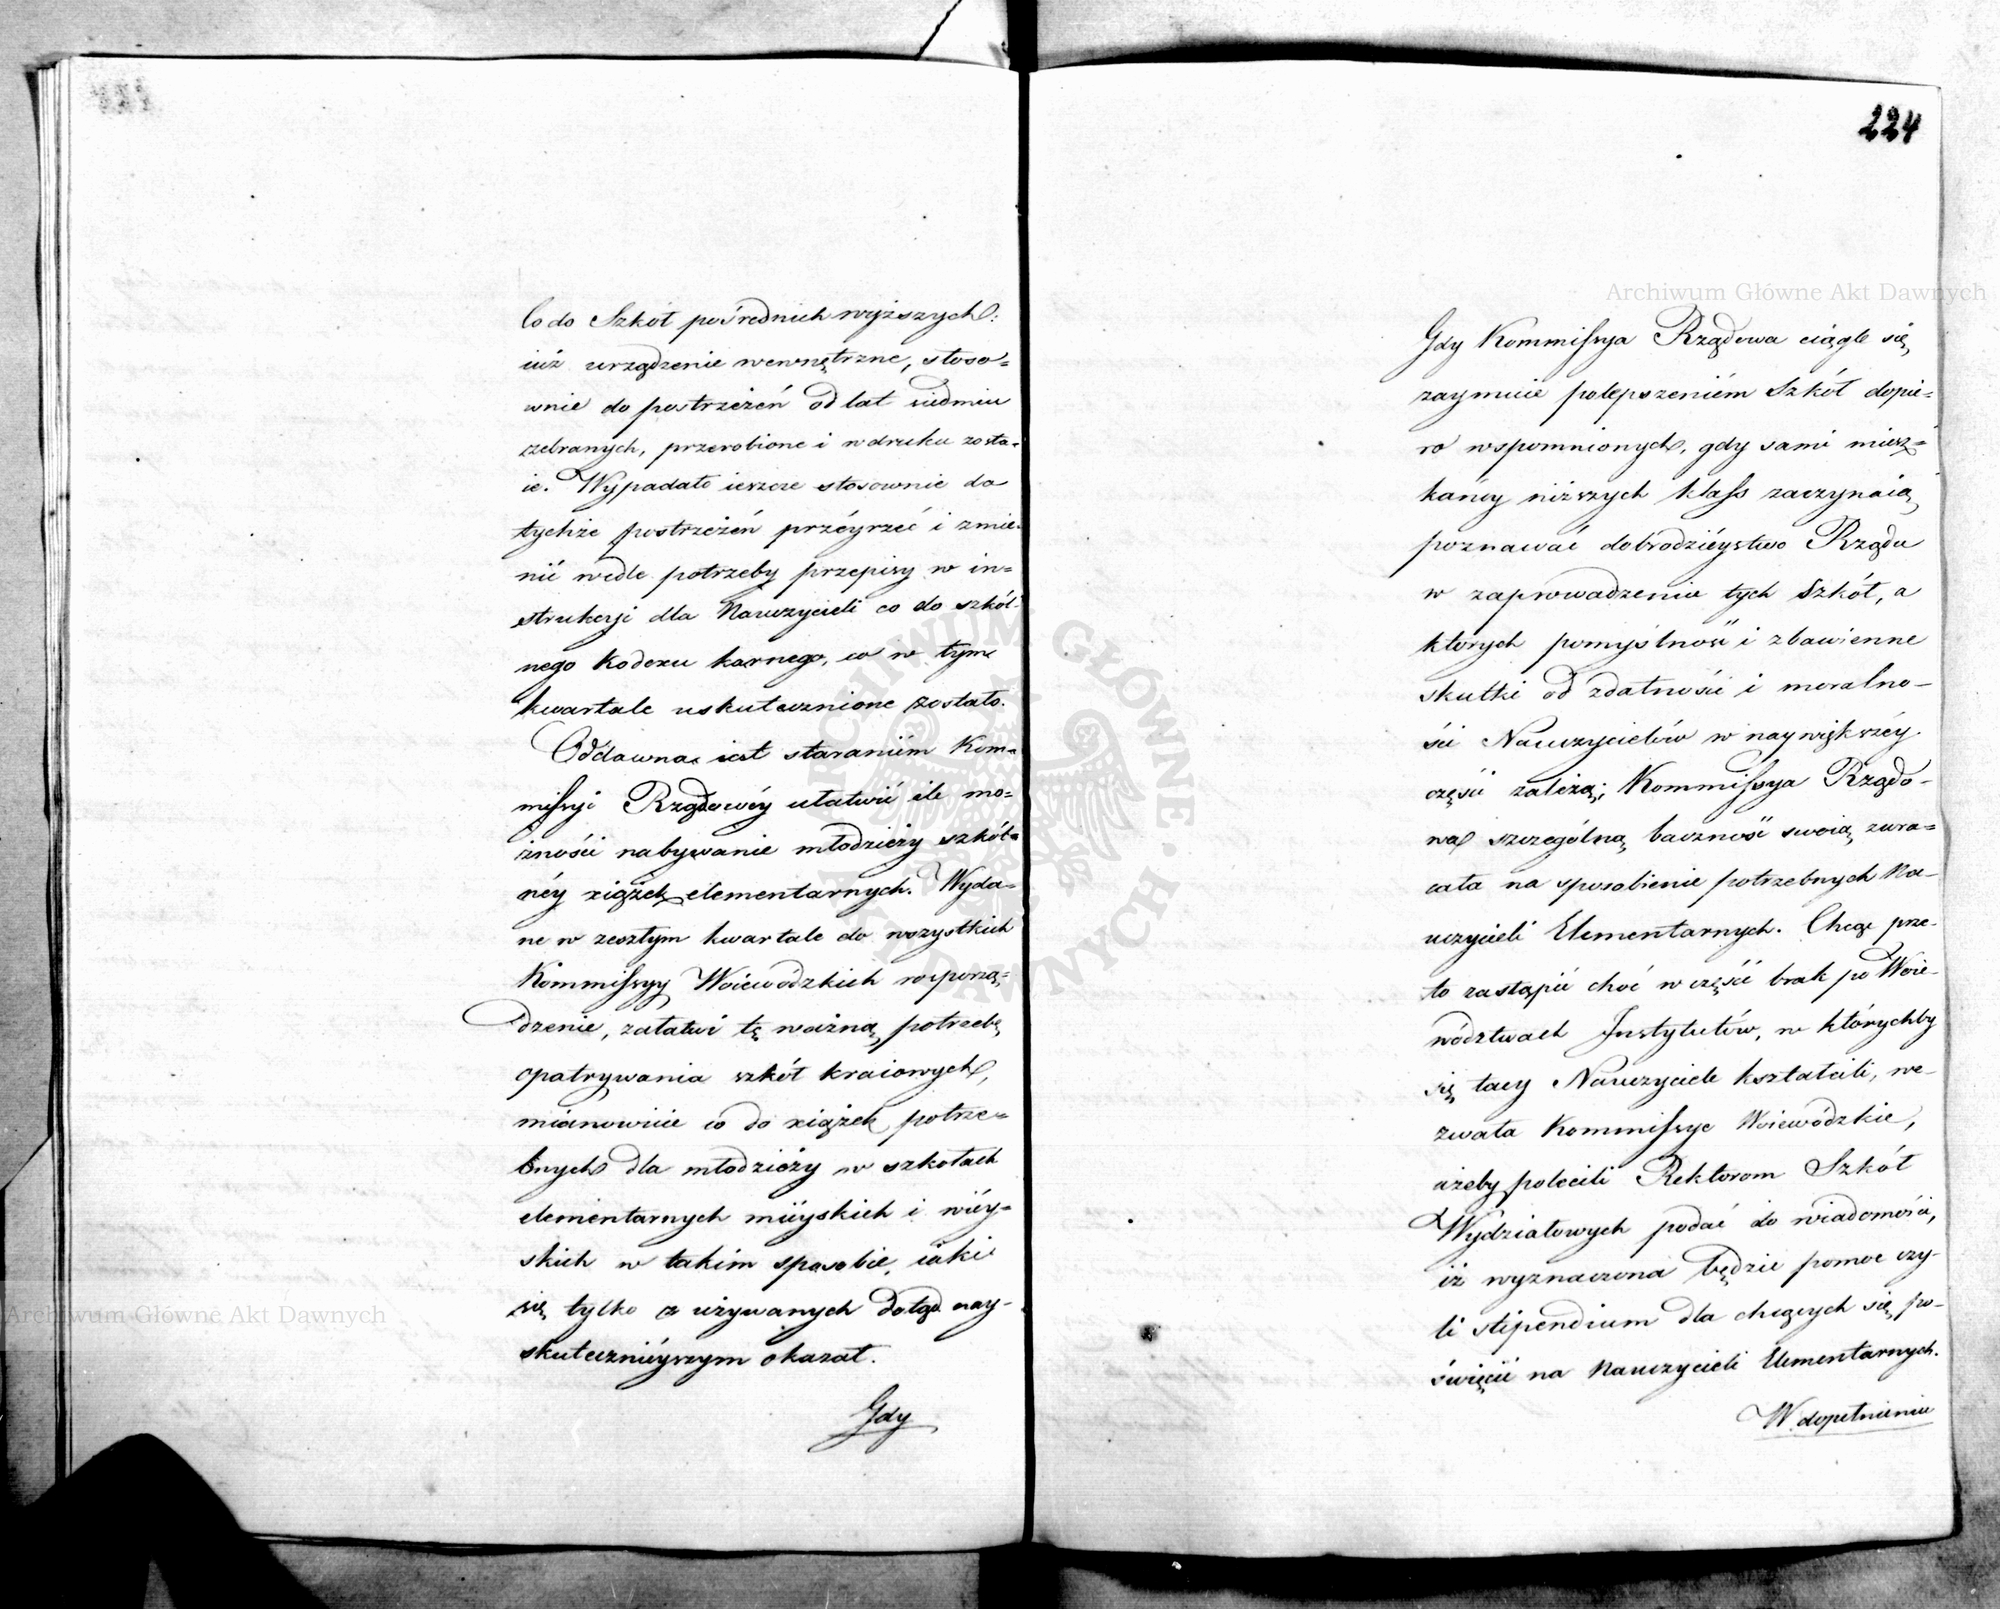 Co do Szkół pośrednich wyższych:
iuż urządzenie wewnętrzne, stoso=
wnie do postrzeżeń od lat siedmiu
zebranych, przerobione i w druku zosta=
ie. Wypadało ieszcze stosownie do
tychże postrzeżeń przéyrzeć i zmie=
nić wedle potrzeby przepisy w in=
strukcji dla Nauczycieli co do szkól=
nego Kodexu karnego, co w tym
kwartale uskutecznione zostało.
Oddawna iest staraniém Kom=
missyi Rządowéy ułatwić ile mo=
żności nabywanie młodzieży szkól=
néy xiążek elementarnych. Wyda=
ne w zeszłym kwartale do wszystkich
Kommissyy Woiewódzkich rosporzą=
dzenie, załatwi tę ważną potrzebę
opatrywania szkół kraiowych,
mianowicie co do xiążek potrze=
bnych dla młodzieży w szkołach
elementarnych mieyskich i wiéy=
skich w takim sposobie, iaki
się tylko z używanych dotąd nay=
skutecznieyszym okazał.
Gdy
224
Gdy Kommissya Rządowa ciągle się
zaymuie polepszeniém Szkół dopie=
ro wspomnionych, gdy sami miesz=
kańcy niższych klass zaczynaią
poznawać dobrodziéystwo Rządu
w zaprowadzeniu tych Szkół, a
których pomyślność i zbawienne
skutki od zdatności i moralno=
ści Nauczycielów w naywiększéy
części zależą; Kommissya Rządo=
wa szczególną baczność swoią zwra=
cała na sposobienie potrzebnych Na=
uczycieli Elementarnych. Chcąc prze=
to zastąpić choć w części brak po Woie=
wództwach Instytutów, w którychby
się tacy Nauczyciele kształcili, we=
zwała Kommissye Woiewódzkie,
ażeby polecili Rektorom Szkół
Wydziałowych podać do wiadomości,
iż wyznaczona będzie pomoc czy=
li stipendium dla chcących się po=
święcić na Nauczycieli Elementarnych.
W dopełnieniu
Archiwum Główne Akt Dawnych
Archiwum Główne Akt Dawnych
ARCHIWUM GŁÓWNE AKT DAWNYCH